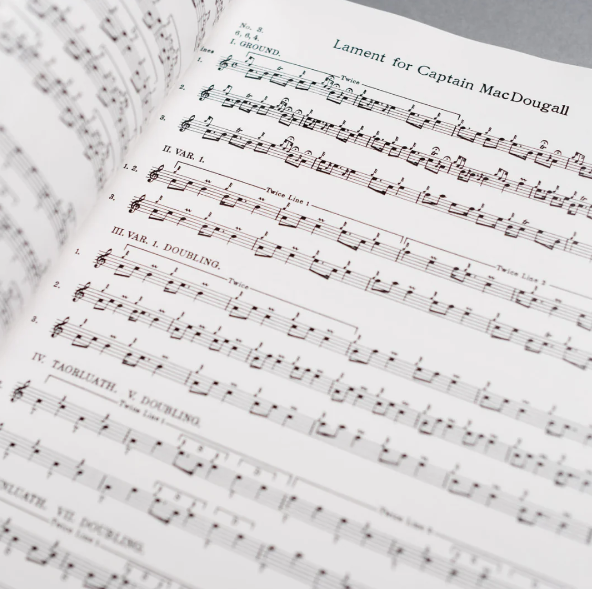 Lament for Captain MacDougall
No. 3.
6, 6, 4.
I. GROUND.
ines
Twice
1.
2.
3.
II. VAR. 1.
1. 2.
Twice Line 1
Twice Line 2
3.
III. VAR. 1. DOUBLING.
Twice
1.
2.
3.
IV. TAORLUATH. V. DOUBLING.
Twice Line 1
Twice Line 2
NLUATH. VII. DOUBLING.
Twice Line 1